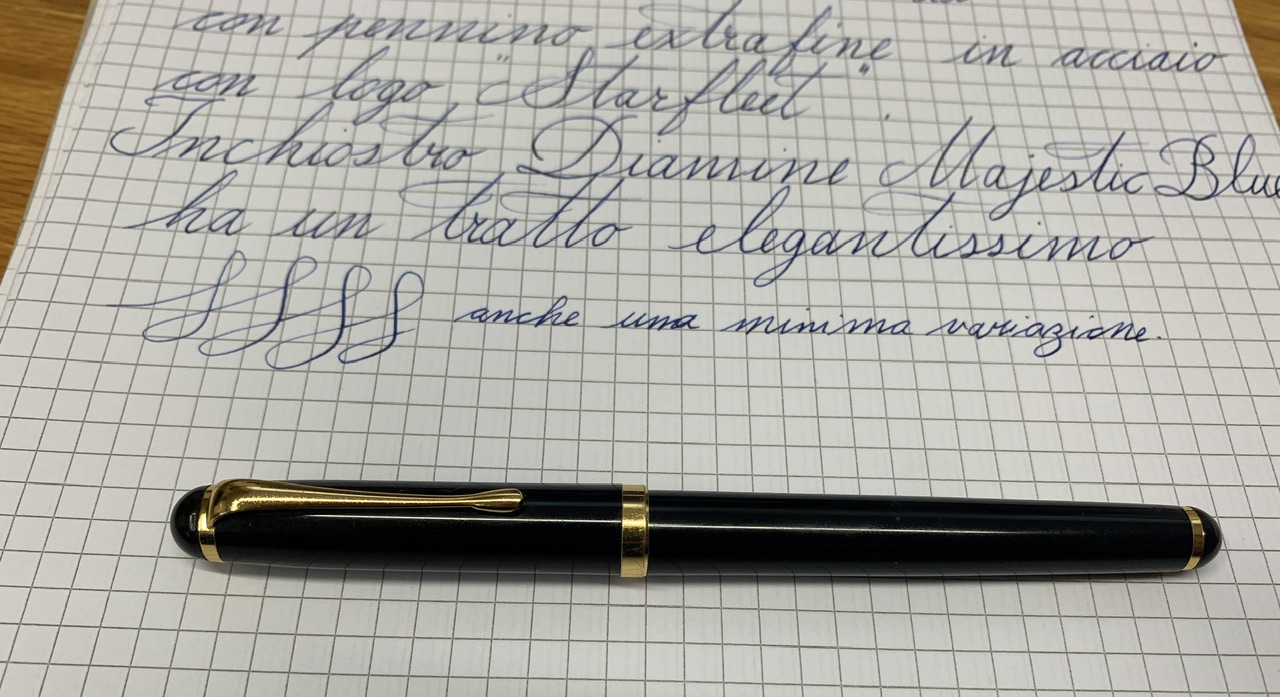 con pennino extrafine in acciaio
con logo "Starfleet".
Inchiostro Diamine Majestic Blue
ha un tratto elegantissimo
anche una minima variazione.